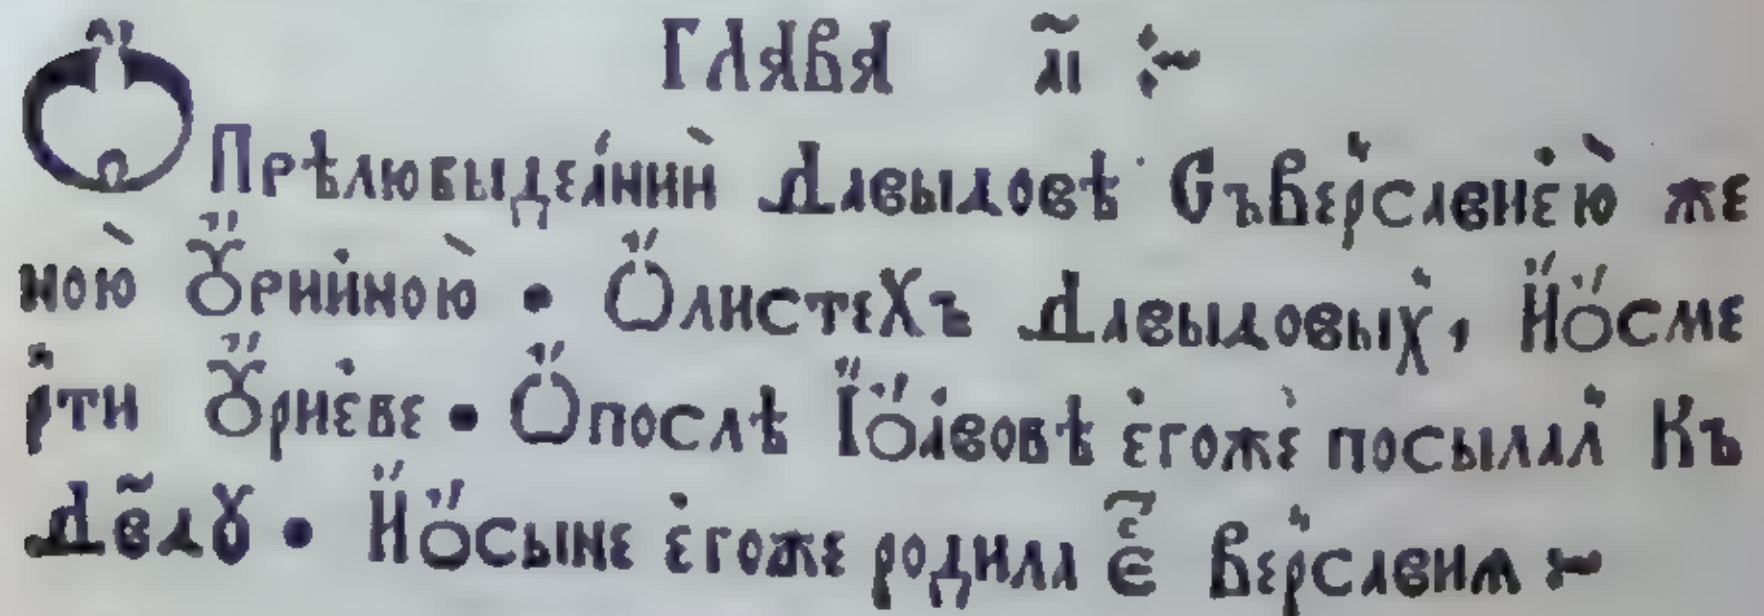 ГЛАВА А҃І
Ѡ҆ Прѣлюбыдеа́нии̇̀ Давыдовѣ Съвер̾савие́ю̀ же
ною̀ Ꙋ҆рии̇ною̀ • Ѡ҆листехъ Давыдовых̾, И҆ѡ҆сме
рти Ꙋ҆рие̇ве • Ѡ҆послѣ Іѡ҆авовѣ е̇гожѐ посылал̾ Къ
Дв҃дꙋ • И҆ѡ҆сыне е̇гоже родила є Вер̾савиѧ